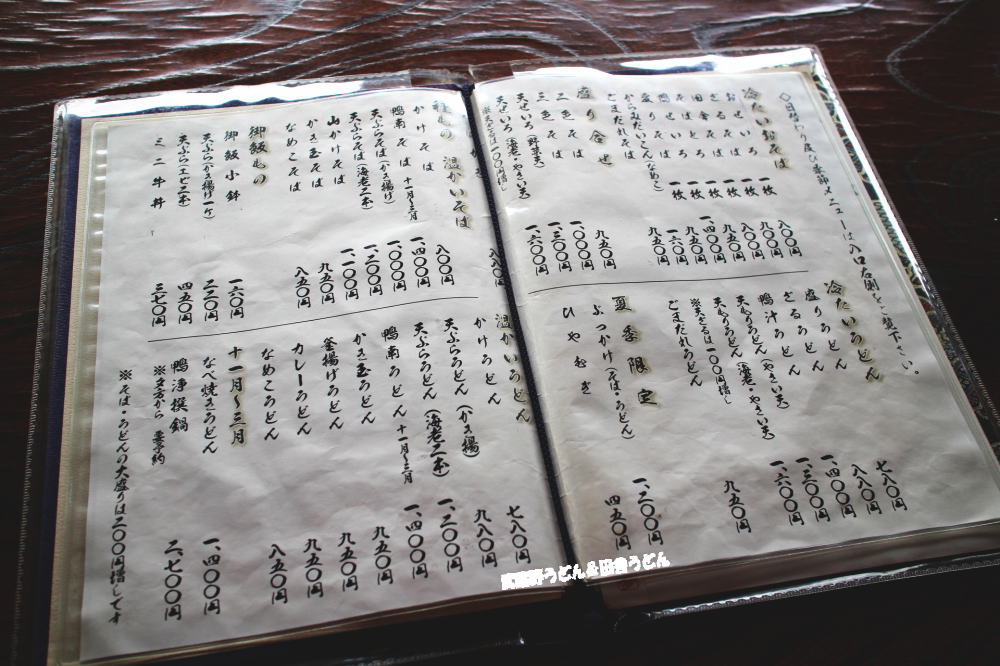 ◇日替わり及び季節メニューは入口右側をご覧下さい。
冷たいおそば
せいろ 一枚 八〇〇円
おせいろ 一枚 九〇〇円
ざるそば 一枚 九五〇円
田舎そば 一枚
そばとろ 一枚 九五〇円
鴨せいろ 一枚 一、六〇〇円
からみだいこん(なめこ)
ごまだれそば 九五〇円
盛り合せ
二色そば 一、〇〇〇円
三色そば 一、三〇〇円
天せいろ(野菜天)
天せいろ(海老・やさい天) 一、六〇〇円
冷たいうどん
盛りうどん 七八〇円
ざるうどん 八八〇円
鴨汁うどん 一、四〇〇円
天もりうどん 一、三〇〇円
天もりうどん(海老・やさい天) 一、六〇〇円
※天ざるは一〇〇円増し
ごまだれうどん 九五〇円
夏季限定
ぶっかけ(そば・うどん) 一、二〇〇円
ひやむぎ 四五〇円
種もの 温かいそば
かけそば 八〇〇円
鴨南そば 十一月〜三月 一、四〇〇円
天ぷらそば(かき揚げ) 一、〇〇〇円
天ぷらそば(海老二本) 一、二〇〇円
山かけそば 一、一〇〇円
かき玉そば 九五〇円
なめこそば 八五〇円
御飯もの
御飯小鉢 一六〇円
天ぷら(かき揚げ一ケ) 二二〇円
天ぷら(エビ二本) 四五〇円
ミニ牛丼 三七〇円
温かいうどん
かけうどん 七八〇円
天ぷらうどん(かき揚) 九八〇円
天ぷらうどん(海老二本) 一、二〇〇円
鴨南うどん 十一月〜三月 一、四〇〇円
かき玉うどん 九五〇円
釜揚げうどん 九五〇円
カレーうどん 九五〇円
なめこうどん 八五〇円
十一月〜三月
なべ焼きうどん 一、四〇〇円
鴨浄撲鍋 二、七〇〇円
※夕方から 要予約
※そば・うどんの大盛りは二〇〇円増しです
武蔵野うどん&田舎うどん